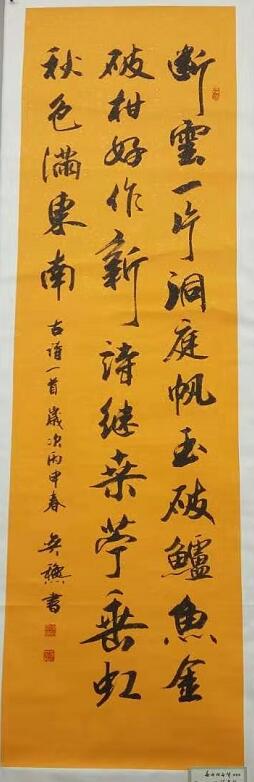 断雲一片洞庭帆玉破鱸魚金
破柑好作新詩继桑苧垂虹
秋色滿東南
古詩一首 歲次丙申春 書